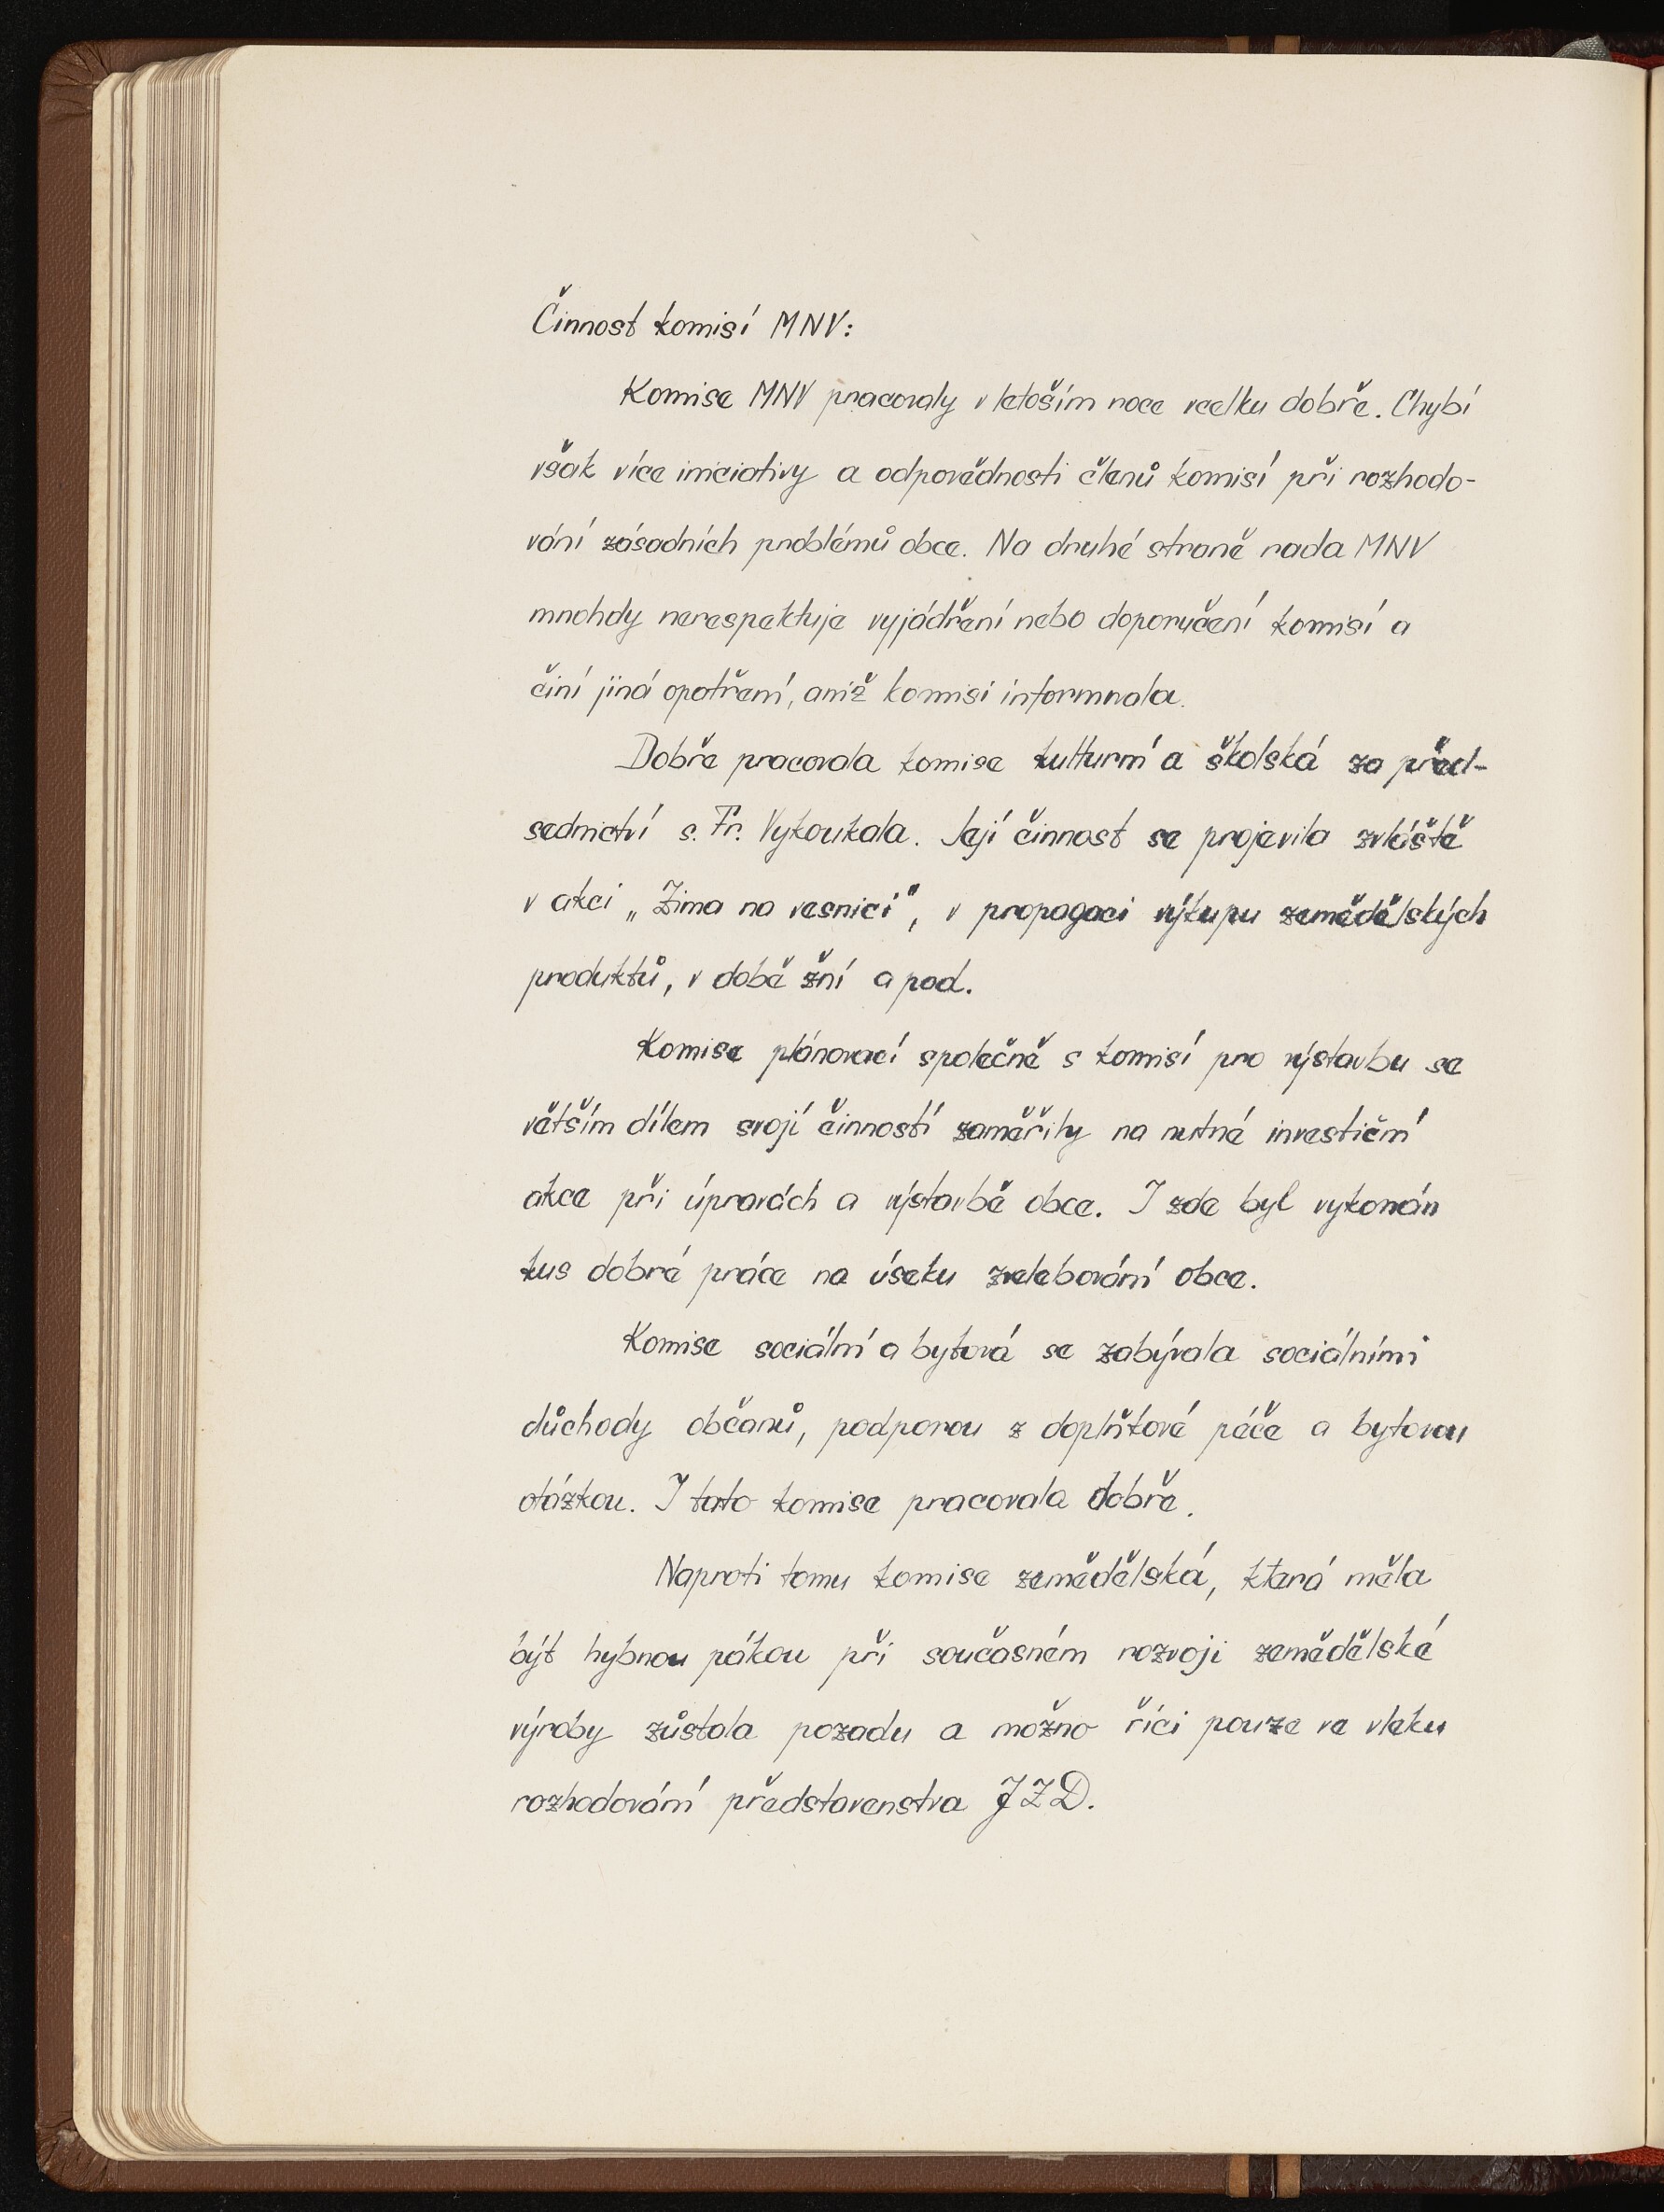 Činnost komisí MNV:
Komise MNV pracovaly v letoším roce vcelku dobře. Chybí
však více iniciativy a odpovědnosti členů komisí při rozhodo-
vání zásadních problémů obce. Na druhé straně rada MNV
mnohdy nerespektuje vyjádření nebo doporučení komisí a
činí jiná opatření, aniž komisi informnala.
Dobře pracovala komise kulturní a školská za před-
sednictví s. Fr. Vykoukala. Její činnost se projevila zvláště
v akci „Zima na vesnici", v propagaci výkupu zemědělských
produktů, v době žní a pod.
Komise plánovací společně s komisí pro výstavbu se
větším dílem svojí činností zaměřily na nutné investiční
akce při úpravách a výstavbě obce. I zde byl vykonán
kus dobré práce na úseku zvelebování obce.
Komise sociální a bytová se zabývala sociálními
důchody občanů, podporou z doplňkové péče a bytovou
otázkou. I tato komise pracovala dobře.
Naproti tomu komise zemědělská, která měla
být hybnou pákou při současném rozvoji zemědělské
výroby zůstala pozadu a možno říci pouze ve vleku
rozhodování představenstva JZD.